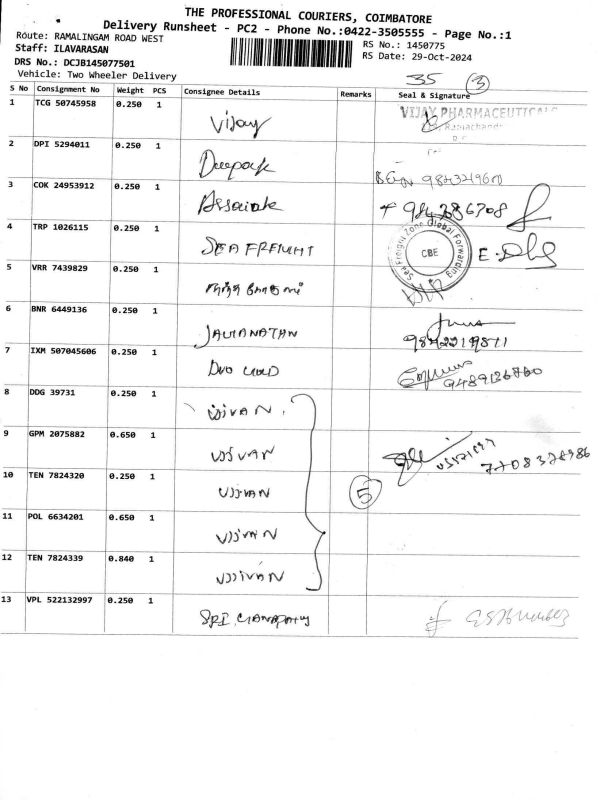 THE PROFESSIONAL COURIERS, COIMBATORE
Delivery Runsheet - PC2 - Phone No.:0422-3505555 - Page No.:1
Route: RAMALINGAM ROAD WEST
RS No.: 1450775
Staff: ILAVARASAN
RS Date: 29-Oct-2024
DRS No.: DCJB145077501
Vehicle: Two Wheeler Delivery
35 3
S No Consignment No Weight PCS Consignee Details Remarks Seal & Signature
1 TCG 50745958 0.250 1 Vijay VIJAY PHARMACEUTICALS
2 DPI 5294011 0.250 1 Deepak
3 COK 24953912 0.250 1
4 TRP 1026115 0.250 1 SEA FREIGHT Sea Freight Zone Global Forwarding CBE
5 VRR 7439829 0.250 1
6 BNR 6449136 0.250 1
7 IXM 507045606 0.250 1
8 DDG 39731 0.250 1 UJJIVAN
9 GPM 2075882 0.650 1 UJJIVAN 7708378986
10 TEN 7824320 0.250 1 UJJIVAN 5
11 POL 6634201 0.650 1 UJJIVAN
12 TEN 7824339 0.840 1 UJJIVAN
13 VPL 522132997 0.250 1 SRI GANAPATHY